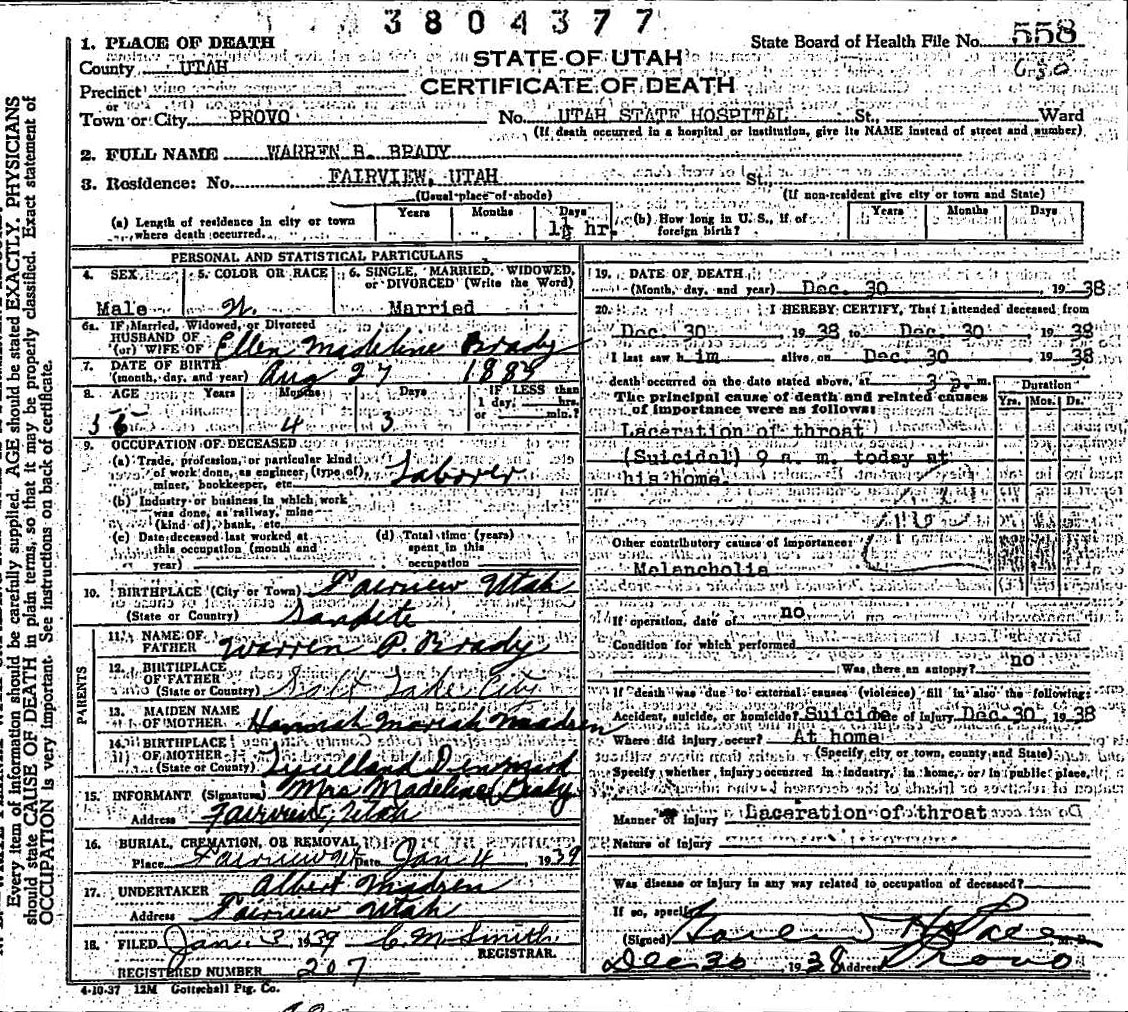 3804377
1. PLACE OF DEATH
State Board of Health File No. 558
County UTAH
STATE OF UTAH
Precinct
CERTIFICATE OF DEATH
or
Town or City PROVO No. UTAH STATE HOSPITAL St., Ward
(If death occurred in a hospital or institution, give its NAME instead of street and number)
2. FULL NAME WARREN B. BRADY
3. Residence: No. FAIRVIEW, UTAH St.
(Usual place of abode) (If non-resident give city or town and State)
(a) Length of residence in city or town where death occurred. Years Months Days hr.
(b) How long in U. S., if of foreign birth? Years Months Days
PERSONAL AND STATISTICAL PARTICULARS
4. SEX Male
5. COLOR OR RACE W.
6. SINGLE, MARRIED, WIDOWED, or DIVORCED (Write the Word) Married
6a. IF Married, Widowed, or Divorced
HUSBAND OF
(or) WIFE OF Ellen Madeline Brady
7. DATE OF BIRTH
(month, day, and year) Aug 27
8. AGE Years Months 4 Days 3
IF LESS than
1 day, hrs.
or min.?
9. OCCUPATION OF DECEASED
(a) Trade, profession, or particular kind
of work done, as engineer, (type of),
miner, bookkeeper, etc. Laborer
(b) Industry or business in which work
was done, as railway, mine
(kind of), bank, etc.
(c) Date deceased last worked at
this occupation (month and
year)
(d) Total time (years)
spent in this
occupation
10. BIRTHPLACE (City or Town) Fairview Utah
(State or Country) Sanpete
PARENTS
11. NAME OF
FATHER Warren P. Brady
12. BIRTHPLACE
OF FATHER
(State or Country) Salt Lake City
13. MAIDEN NAME
OF MOTHER Hannah Mariah Madsen
14. BIRTHPLACE
OF MOTHER
(State or Country) Denmark
15. INFORMANT (Signature) Mrs Madeline Brady
Address Fairview, Utah
16. BURIAL, CREMATION, OR REMOVAL
Place Fairview Ut Date Jan 4, 1939
17. UNDERTAKER Albert Madsen
Address Fairview Utah
18. FILED Jan. 3 1939 C. M. Smith
REGISTRAR.
REGISTERED NUMBER 207
4-10-37 12M Gottschall Ptg. Co.
19. DATE OF DEATH
(Month, day, and year) Dec. 30 1938
20. I HEREBY CERTIFY, That I attended deceased from
Dec. 30 1938 to Dec. 30 1938
I last saw him alive on Dec. 30 1938
death occurred on the date stated above, at 3 p. m.
The principal cause of death and related causes
of importance were as follows:
Duration
Yrs. Mos. Ds.
Laceration of throat
(Suicidal) 9 a. m. today at
his home.
Other contributory causes of importance:
Melancholia
If operation, date of no
Condition for which performed
Was there an autopsy? no
If death was due to external causes (violence) fill in also the following:
Accident, suicide, or homicide? Suicide Date of injury Dec. 30, 1938
Where did injury occur? At home
(Specify city or town, county and State)
Specify whether injury occurred in industry, in home, or in public place.
Manner of injury Laceration of throat
Nature of Injury
Was disease or injury in any way related to occupation of deceased?
If so, specify
(Signed) M. D.
Dec 30 1938 Address Provo
Every item of information should be carefully supplied. AGE should be stated EXACTLY. PHYSICIANS
should state CAUSE OF DEATH in plain terms, so that it may be properly classified. Exact statement of
OCCUPATION is very important. See instructions on back of certificate.